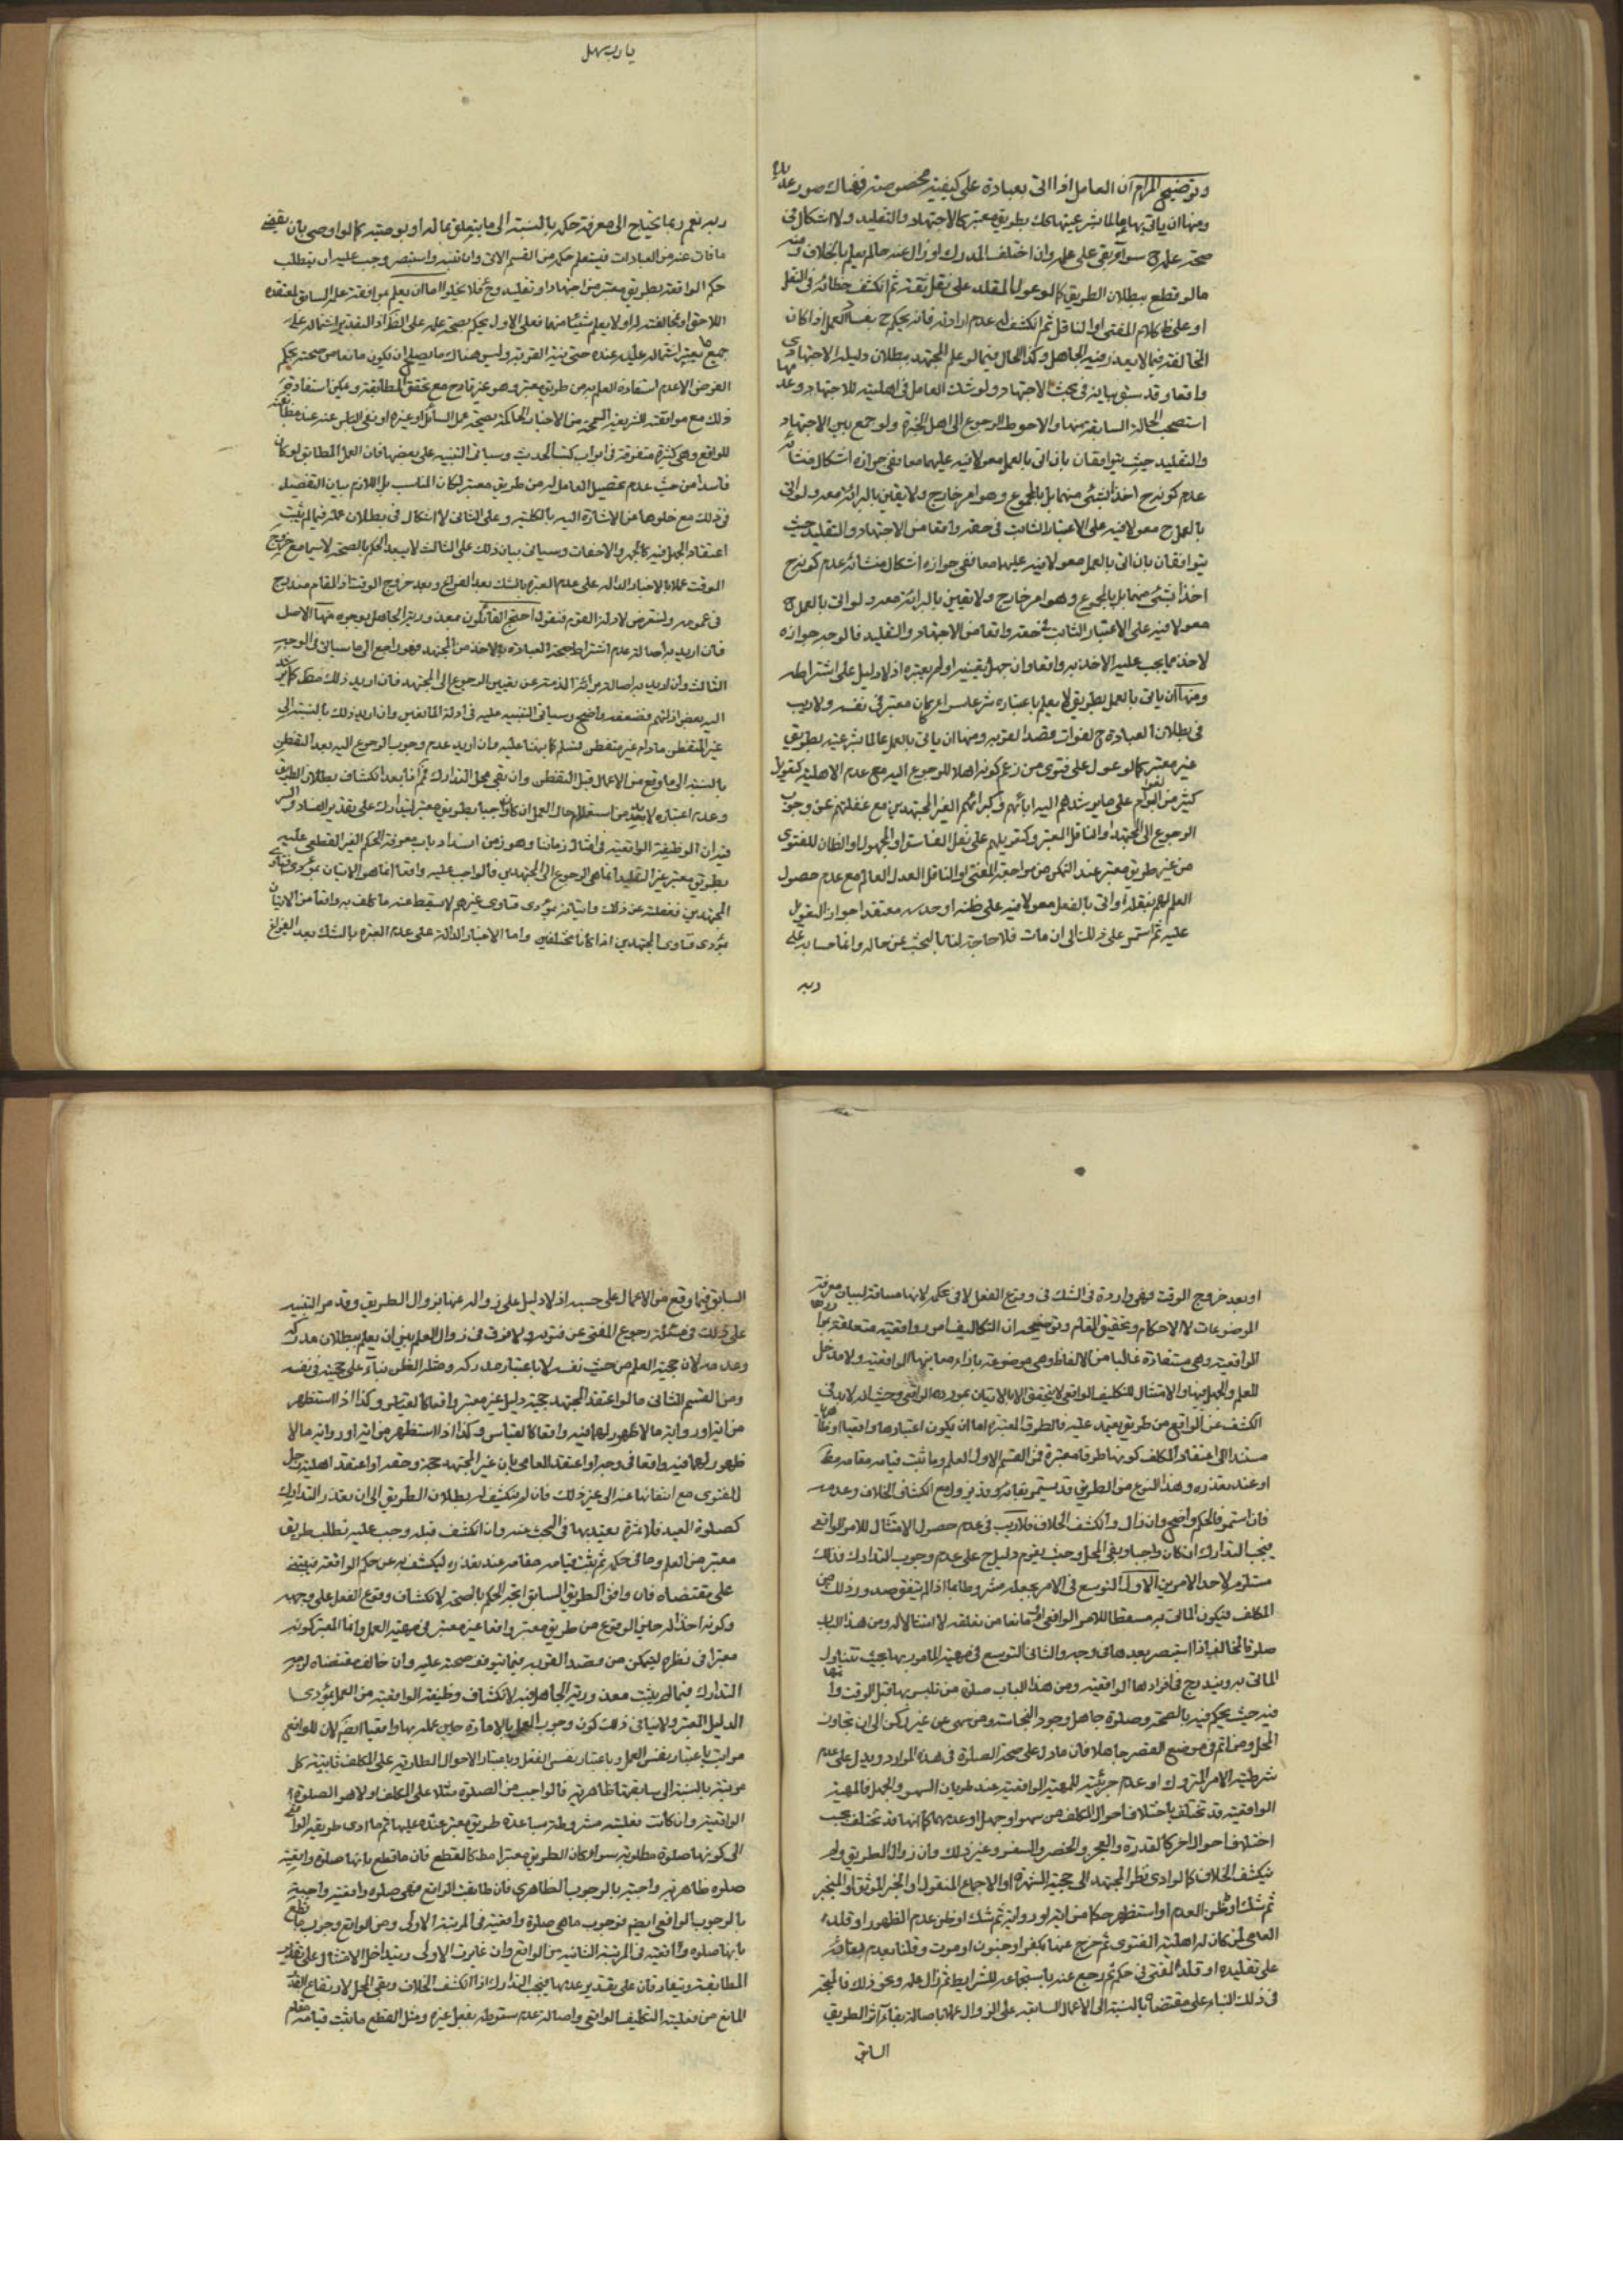 وتوضيح المرام ان العامل اذا اتى بعبادة على كيفية مخصوصة فهناك صور عديدة
ومنها ان ياتى بها عالما بشرعيتها كك بطريق معتبر كالاجتهاد والتقليد ولا اشكال فى
صحة عمله ح سواء بقى على علمه وان اختلف المدرك او زال عنه ما لم يعلم بالخلاف ومنه
ما لو قطع ببطلان الطريق كما لو عول المقلد على نقل ثقة ثم انكشف خطائه فى النقل
او على ظ كلام المفتى او الناقل ثم انكشف له عدم ارادته فانه يحكم ح بفساد العمل اذا كان
المخالفة فيما لا يعذر فيه الجاهل وكذا الحال فيما لو علم المجتهد ببطلان دليله الاجتهادى
واقعا وقد سبق بيانه فى بحث الاجتهاد ولو شك العامل فى اهليته للاجتهاد وعدمها
استصحب الحالة السابقة منهما والاحوط الرجوع الى اهل الخبرة ولو جمع بين الاجتهاد
والتقليد حيث يتوافقان بان اتى بالعمل معولا فيه عليهما معا ففى جوازه اشكال منشائه
عدم كونه ح اخذا بشئ منهما بل بالمجموع وهو امر خارج ولا يقين بالبرائة معه ولو اتى
بالعمل ح معولا فيه على الاعتبار الثابت فى حقه واقعا من الاجتهاد والتقليد حيث
يتوافقان بان اتى بالعمل معولا فيه عليهما معا ففى جوازه اشكال منشائه عدم كونه ح
اخذا بشئ منهما بل بالمجموع وهو امر خارج ولا يقين بالبرائة معه ولو اتى بالعمل ح
معولا فيه على الاعتبار الثابت فى حقه واقعا من الاجتهاد والتقليد فالوجه جوازه
لاخذه بما يجب عليه الاخذ به واقعا وان جهل بتعيينه او لم يعتبره اذ لا دليل على اشتراطه
ومنها ان ياتى بالعمل بطريق لا يعلم باعتباره شرعا سواء كان معتبرا فى نفسه ولا ريب
فى بطلان العبادة ح لفوات قصد القربة ومنها ان ياتى بالعمل عالما بشرعيته بطريق
غير معتبر كما لو عول على فتوى من زعم كونه اهلا للرجوع اليه مع عدم الاهلية كتعويل
كثير من العوام على ما يرشدهم اليه ابائهم وكبرائهم الغير المجتهدين مع غفلتهم عن وجوب
الرجوع الى المجتهد او الناقل المعتبر وكتعويلهم على نقل الفاسق او المجهول او الظان للفتوى
من غير طريق معتبر عند التمكن من مراجعة المفتى او الناقل العدل العالم مع عدم حصول
العلم لهم بنقله او اتى بالفعل معولا فيه على ظنه او حدسه معتقدا جواز التعويل
عليه ثم استمر على ذلك الى ان مات فلا حاجة لنا بالبحث عن حاله وانما حسابه على
ربه
يا رب سهل
ربه نعم ربما يحتاج الى معرفة حكمه بالنسبة الى ما يتعلق بماله او بوصيته كما لو اوصى بان يقضى
ما فات عنه من العبادات فيستعلم حكمه من القسم الاتى وان تنبه واستبصر وجب عليه ان يتطلب
حكم الواقعة بطريق معتبر من اجتهاد او تقليد وح فلا يخلو اما ان يعلم موافقة عمله السابق لمعتقده
اللاحق او مخالفته له او لا يعلم شيئا منهما فعلى الاول يحكم بصحة عمله على الظ اذ التقدير اشتماله على
جميع ما يعتبر اشتماله عليه عنده حتى نية القربة وليس هناك ما يصلح ان يكون مانعا من صحته بحكم
الفرض الا عدم استفادة العلم به من طريق معتبر وهو غير قادح مع تحقق المطابقة ويمكن استفادة
ذلك مع موافقته للشريعة السمحة من الاخبار الحاكمة بصحة عمل السائل او غيره او نفى الباس عنه عند مطابقته
للواقع وهى كثيرة متفرقة فى ابواب كتب الحديث وسياتى التنبيه على بعضها فان العمل المطابق لو كان
فاسدا من حيث عدم تحصيل العامل له من طريق معتبر لكان المناسب بل اللازم بيان التفصيل
فى ذلك مع خلوها عن الاشارة اليه بالكلية وعلى الثانى لا اشكال فى بطلان عمله فيما لم يثبت
اعتقاد الجهل فيه كالجهر والاخفات وسياتى بيان ذلك وعلى الثالث لا يبعد الحكم بالصحة لا سيما مع خروج
الوقت عملا بالاخبار الدالة على عدم العبرة بالشك بعد الفراغ وبعد خروج الوقت اذ المقام مندرج
فى عمومه ولنتعرض لادلة القوم فنقول احتج القائلون بمعذورية الجاهل بوجوه منها الاصل
فان اريد به اصالة عدم اشتراط صحة العبادة بالاخذ من المجتهد فهو راجع الى ما سياتى فى الوجه
الثالث وان اريد به اصالة برائة الذمة عن تعيين الرجوع الى المجتهد فان اريد ذلك مطلقا كما يرشد
اليه بعض ادلتهم فضعفه واضح وسياتى التنبيه عليه فى ادلة المانعين وان اريد ذلك بالنسبة الى
غير المتفطن مادام غير متفطن فمسلم كما نبهنا عليه وان اريد عدم وجوب الرجوع اليه بعد التفطن
بالنسبة الى ما وقع من الاعمال قبل التفطن وان بقى محل التدارك ثم انا بعد انكشاف بطلان الطريق
وعدم اعتباره لا بد من استعلام حال العمل ان كان واجبا بطريق معتبر ليتدارك على تقدير الفساد والسر
فيه ان الوظيفة الواقعية فى امثال زماننا وهو زمن انسداد باب معرفة الحكم الغير القطعى عليه
بطريق معتبر غير التقليد انما هى الرجوع الى المجتهدين فالواجب عليه واقعا انما هو الاتيان بمؤدى فتاوى
المجتهدين فغفلته عن ذلك واتيانه بمؤدى فتاوى غيرهم لا يسقط عنه ما كلف به واقعا من الاتيان
بمؤدى فتاوى المجتهدين اذا كانا مختلفين واما الاخبار الدالة على عدم العبرة بالشك بعد الفراغ
او بعد خروج الوقت فهى واردة فى الشك فى وقوع الفعل لا فى حكمه لانها مساقة لبيان معرفة
الموضوعات لا الاحكام وتحقيق المقام وتوضيحه ان التكاليف امور واقعية متعلقة بمواردها
الواقعية وهى مستفادة غالبا من الالفاظ وهى موضوعة بازاء معانيها الواقعية ولا مدخل
للعلم والجهل فيها والامتثال للتكليف الواقعى لا يتحقق الا بالاتيان بمورده الواقعى وحيث انه لا بد فى
الكشف عن الواقع من طريق يعتمد عليه فالطرق المعتبرة اما ان يكون اعتبارها واقعيا او ظاهريا
مستندا الى اعتقاد المكلف كونها طرقا معتبرة فمن القسم الاول العلم وما ثبت قيامه مقامه مطلقا
او عند تعذره وهذا النوع من الطريق قد يستمر بقائه وقد يزول مع انكشاف الخلاف وعدمه
فان استمر فالحكم واضح وان زال وانكشف الخلاف فلا ريب فى عدم حصول الامتثال للامر الواقعى
فيجب التدارك ان كان واجبا وبقى المحل وحيث يقوم دليل ح على عدم وجوب التدارك فذلك
مستلزم لاحد الامرين الاول التوسع فى الامر بجعله مشروطا بما اذا لم يتفق صدور ذلك من
المكلف فيكون الماتى به مسقطا للامر الواقعى او مانعا من تعلقه لا امتثالا له ومن هذا الباب
صلوة المخالف اذا استبصر بعدها فى وجه والثانى التوسع فى مهية المامور بها بحيث تتناول
الماتى به ويندرج فى افرادها الواقعية ومن هذا الباب صلوة من تلبس بها قبل الوقت واتمها
فيه حيث يحكم فيه بالصحة وصلوة جاهل وجود النجاسة ومن سهى عن غير ركن الى ان تجاوز
المحل ومن اتم فى موضع القصر جاهلا فان ما دل على صحة الصلوة فى هذه الموارد ويدل على عدم
شرطية الامر المتروك او عدم جزئيته للمهية الواقعية عند طريان السهو والجهل فالمهية
الواقعية قد تختلف باختلاف احوال المكلف من سهو او جهل او عدمهما كما انها قد تختلف بحسب
اختلاف احوال اخر كالقدرة والعجز والحضر والسفر وغير ذلك وان زوال الطريق ولم
ينكشف الخلاف كما لو ادى نظر المجتهد الى حجية الشهرة او الاجماع المنقول او الخبر الموثق او المنجبر
ثم شك او ظن العدم او استظهر حكما من اية او رواية ثم شك او ظن عدم الظهور او قلد
العامى لمن كان له اهلية الفتوى ثم خرج عنها بكفر او جنون او موت وقلنا بعدم بقائه
على تقليده او قلد المفتى فى حكم ثم رجع عنه باستجماعه للشرايط ثم زال علمه ونحو ذلك فالمتجه
فى ذلك البناء على مقتضاه بالنسبة الى الاعمال السابقة على الزوال عملا باصالة بقاء اثر الطريق
السابق
السابق فيما وقع من الاعمال على حسبه اذ لا دليل على زواله عنها بزوال الطريق وقد مر التنبيه
على ذلك فى مسئلة رجوع المفتى عن فتويه ولا فرق فى زوال العلم بين ان يعلم ببطلان مدركه
وعدمه لان حجية العلم من حيث نفسه لا باعتبار مدركه ومثله الظن بناء على حجيته فى نفسه
ومن القسم الثانى ما لو اعتقد المجتهد حجية دليل غير معتبر واقعا كالقياس وكذا اذا استظهر
من اية او رواية ما لا ظهور لهما فيه واقعا كالقياس وكذا اذا استظهر من اية او رواية ما لا
ظهور لهما فيه واقعا فى وجه او اعتقد العامى بان غير المجتهد حجة فى حقه او اعتقد اهلية رجل
للفتوى مع انتفائها عنه الى غير ذلك فان لم ينكشف له بطلان الطريق الى ان تعذر التدارك
كصلوة العيد فلا ثمرة يعتد بها فى البحث عنه وان انكشف قبله وجب عليه تطلب طريق
معتبر من العلم وما فى حكمه ثم يثبت قيامه مقامه عند تعذره ليكشف به عن حكم الواقعة فيبنى
على مقتضاه فان وافق الطريق السابق اتجه الحكم بالصحة لانكشاف وقوع الفعل على وجهه
وكونه اخذا له حين الوقوع من طريق معتبر واقعا غير معتبر فى مهية العمل وانما المعتبر كونه
معتبرا فى نظره ليتمكن من قصد القربة فيما تتوقف صحته عليه وان خالف مقتضاه لزمه
التدارك فيما لم يثبت معذورية الجاهل فيه لانكشاف وظيفته الواقعية من العمل بمؤدى
الدليل المعتبر ولا ينافى ذلك كون وجوب العمل بالامارة حين علمه بها واقعيا ايضا لان للواقع
مراتب باعتبار نفس العمل وباعتبار نفس الفعل وباعتبار الاحوال الطارية على المكلف ثانية كل
مرتبة بالنسبة الى سابقتها ظاهرية فالواجب من الصلوة مثلا على المكلف اولا هو الصلوة
الواقعية وان كانت فعليته مشروطة بمساعدة طريق معتبر عنده عليها ثم ما ادى طريقه الواقعى
الى كونها صلوة مطلوبة سواء كان الطريق معتبرا مطلقا كالقطع فان ما قطع بانها صلوة واقعية
صلوة ظاهرية واجبة بالوجوب الظاهرى فان طابقت الواقع فهى صلوة واقعية واجبة
بالوجوب الواقعى ايضا فوجوب ما هى صلوة واقعية فى المرتبة الاولى ومن الواقع وجوب ما قطع
بانها صلوة واقعية فى المرتبة الثانية من الواقع وان غايرت الاولى ويتداخل الامتثال على تقدير
المطابقة ويتفارقان على تقدير عدمها فيجب التدارك اذا انكشف الخلاف وبقى المحل لارتفاع العذر
المانع من فعلية التكليف الواقعى واصالة عدم سقوطه بفعل غيره ومثل القطع ما ثبت قيامه مقامه